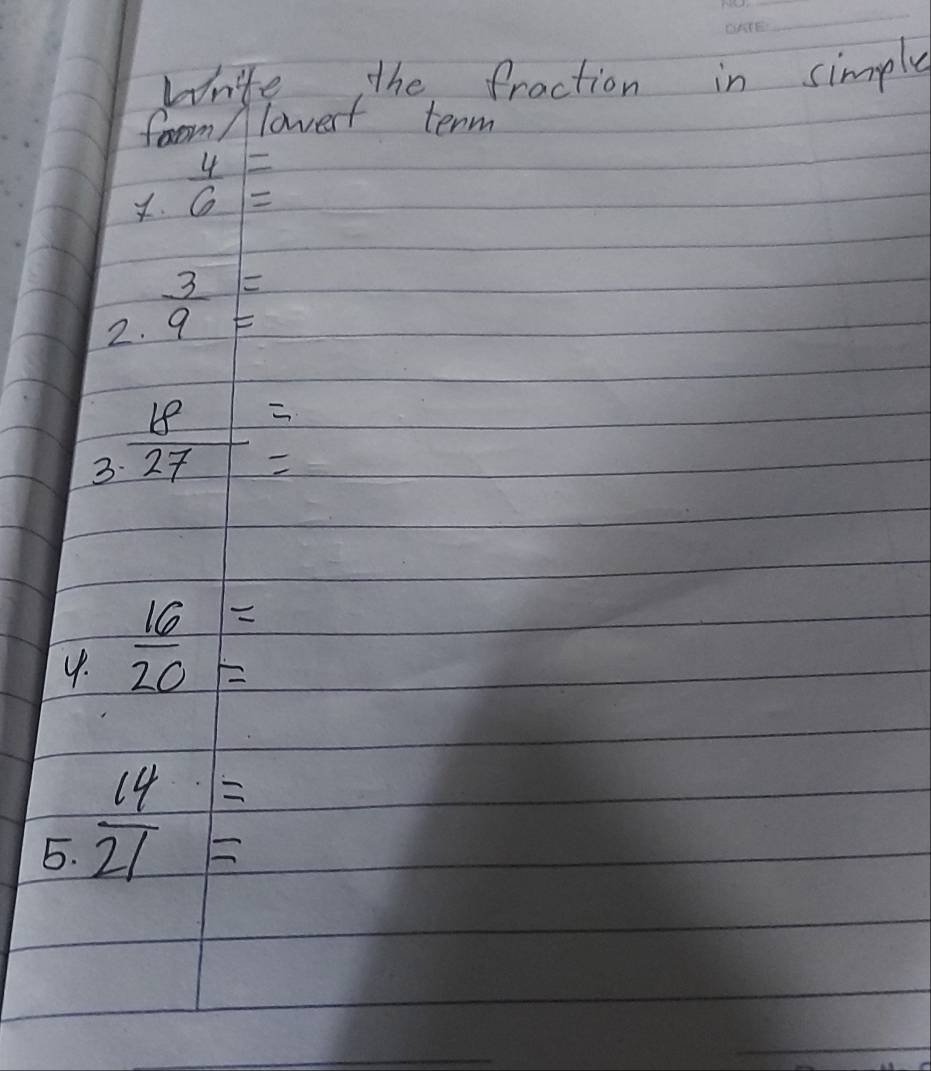 NO.
DATE
Write the fraction in simple
form/lowest term
1. 4/6 =
=
2. 3/9 =
=
3. 18/27 =
=
4. 16/20 =
=
5. 14/21 =
=